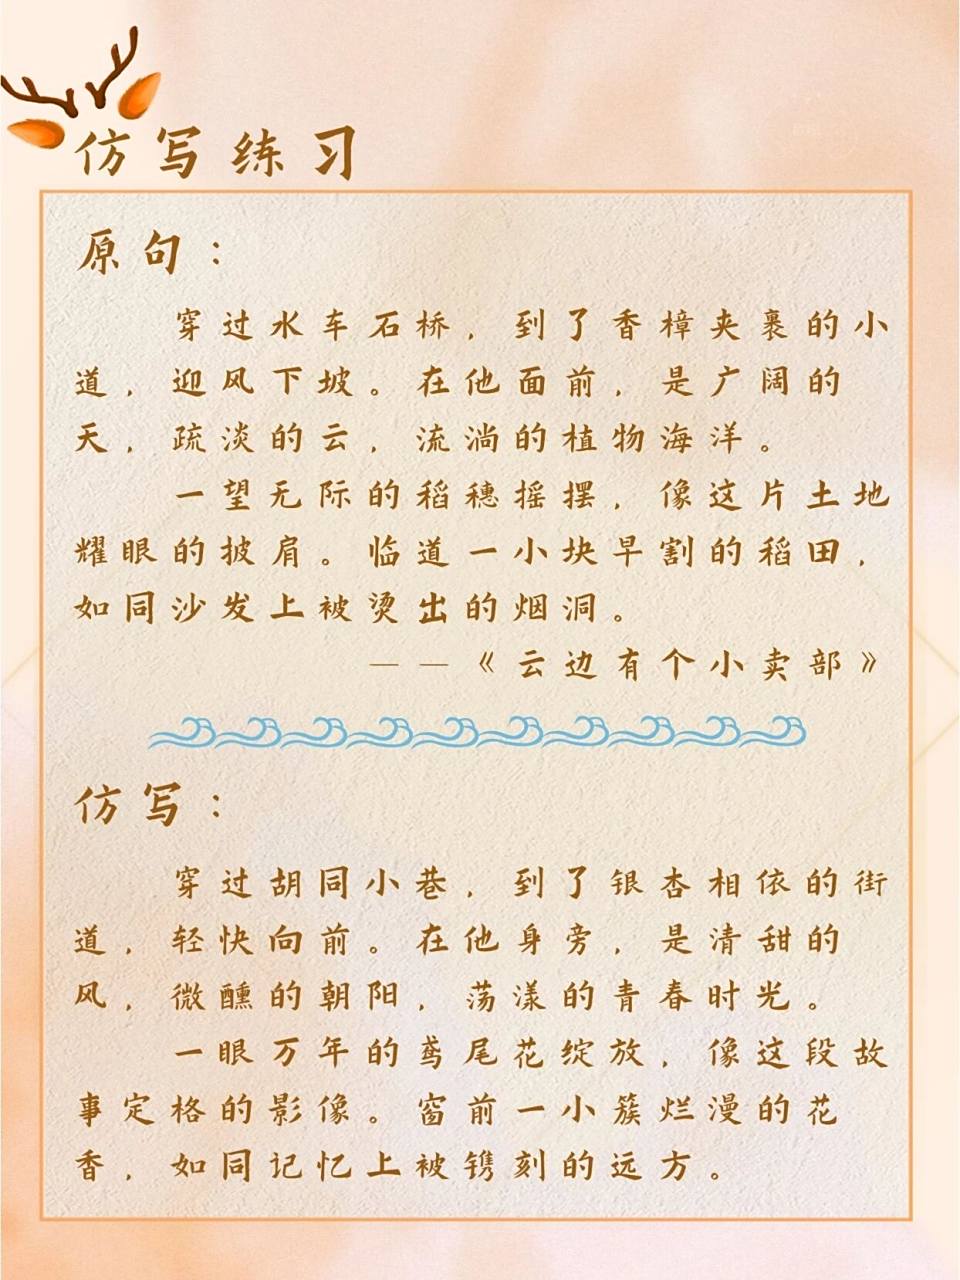 仿写练习
原句：
穿过水车石桥，到了香樟夹裹的小
道，迎风下坡。在他面前，是广阔的
天，疏淡的云，流淌的植物海洋。
一望无际的稻穗摇摆，像这片土地
耀眼的披肩。临道一小块早割的稻田，
如同沙发上被烫出的烟洞。
——《云边有个小卖部》
仿写：
穿过胡同小巷，到了银杏相依的街
道，轻快向前。在他身旁，是清甜的
风，微醺的朝阳，荡漾的青春时光。
一眼万年的鸢尾花绽放，像这段故
事定格的影像。窗前一小簇烂漫的花
香，如同记忆上被镌刻的远方。